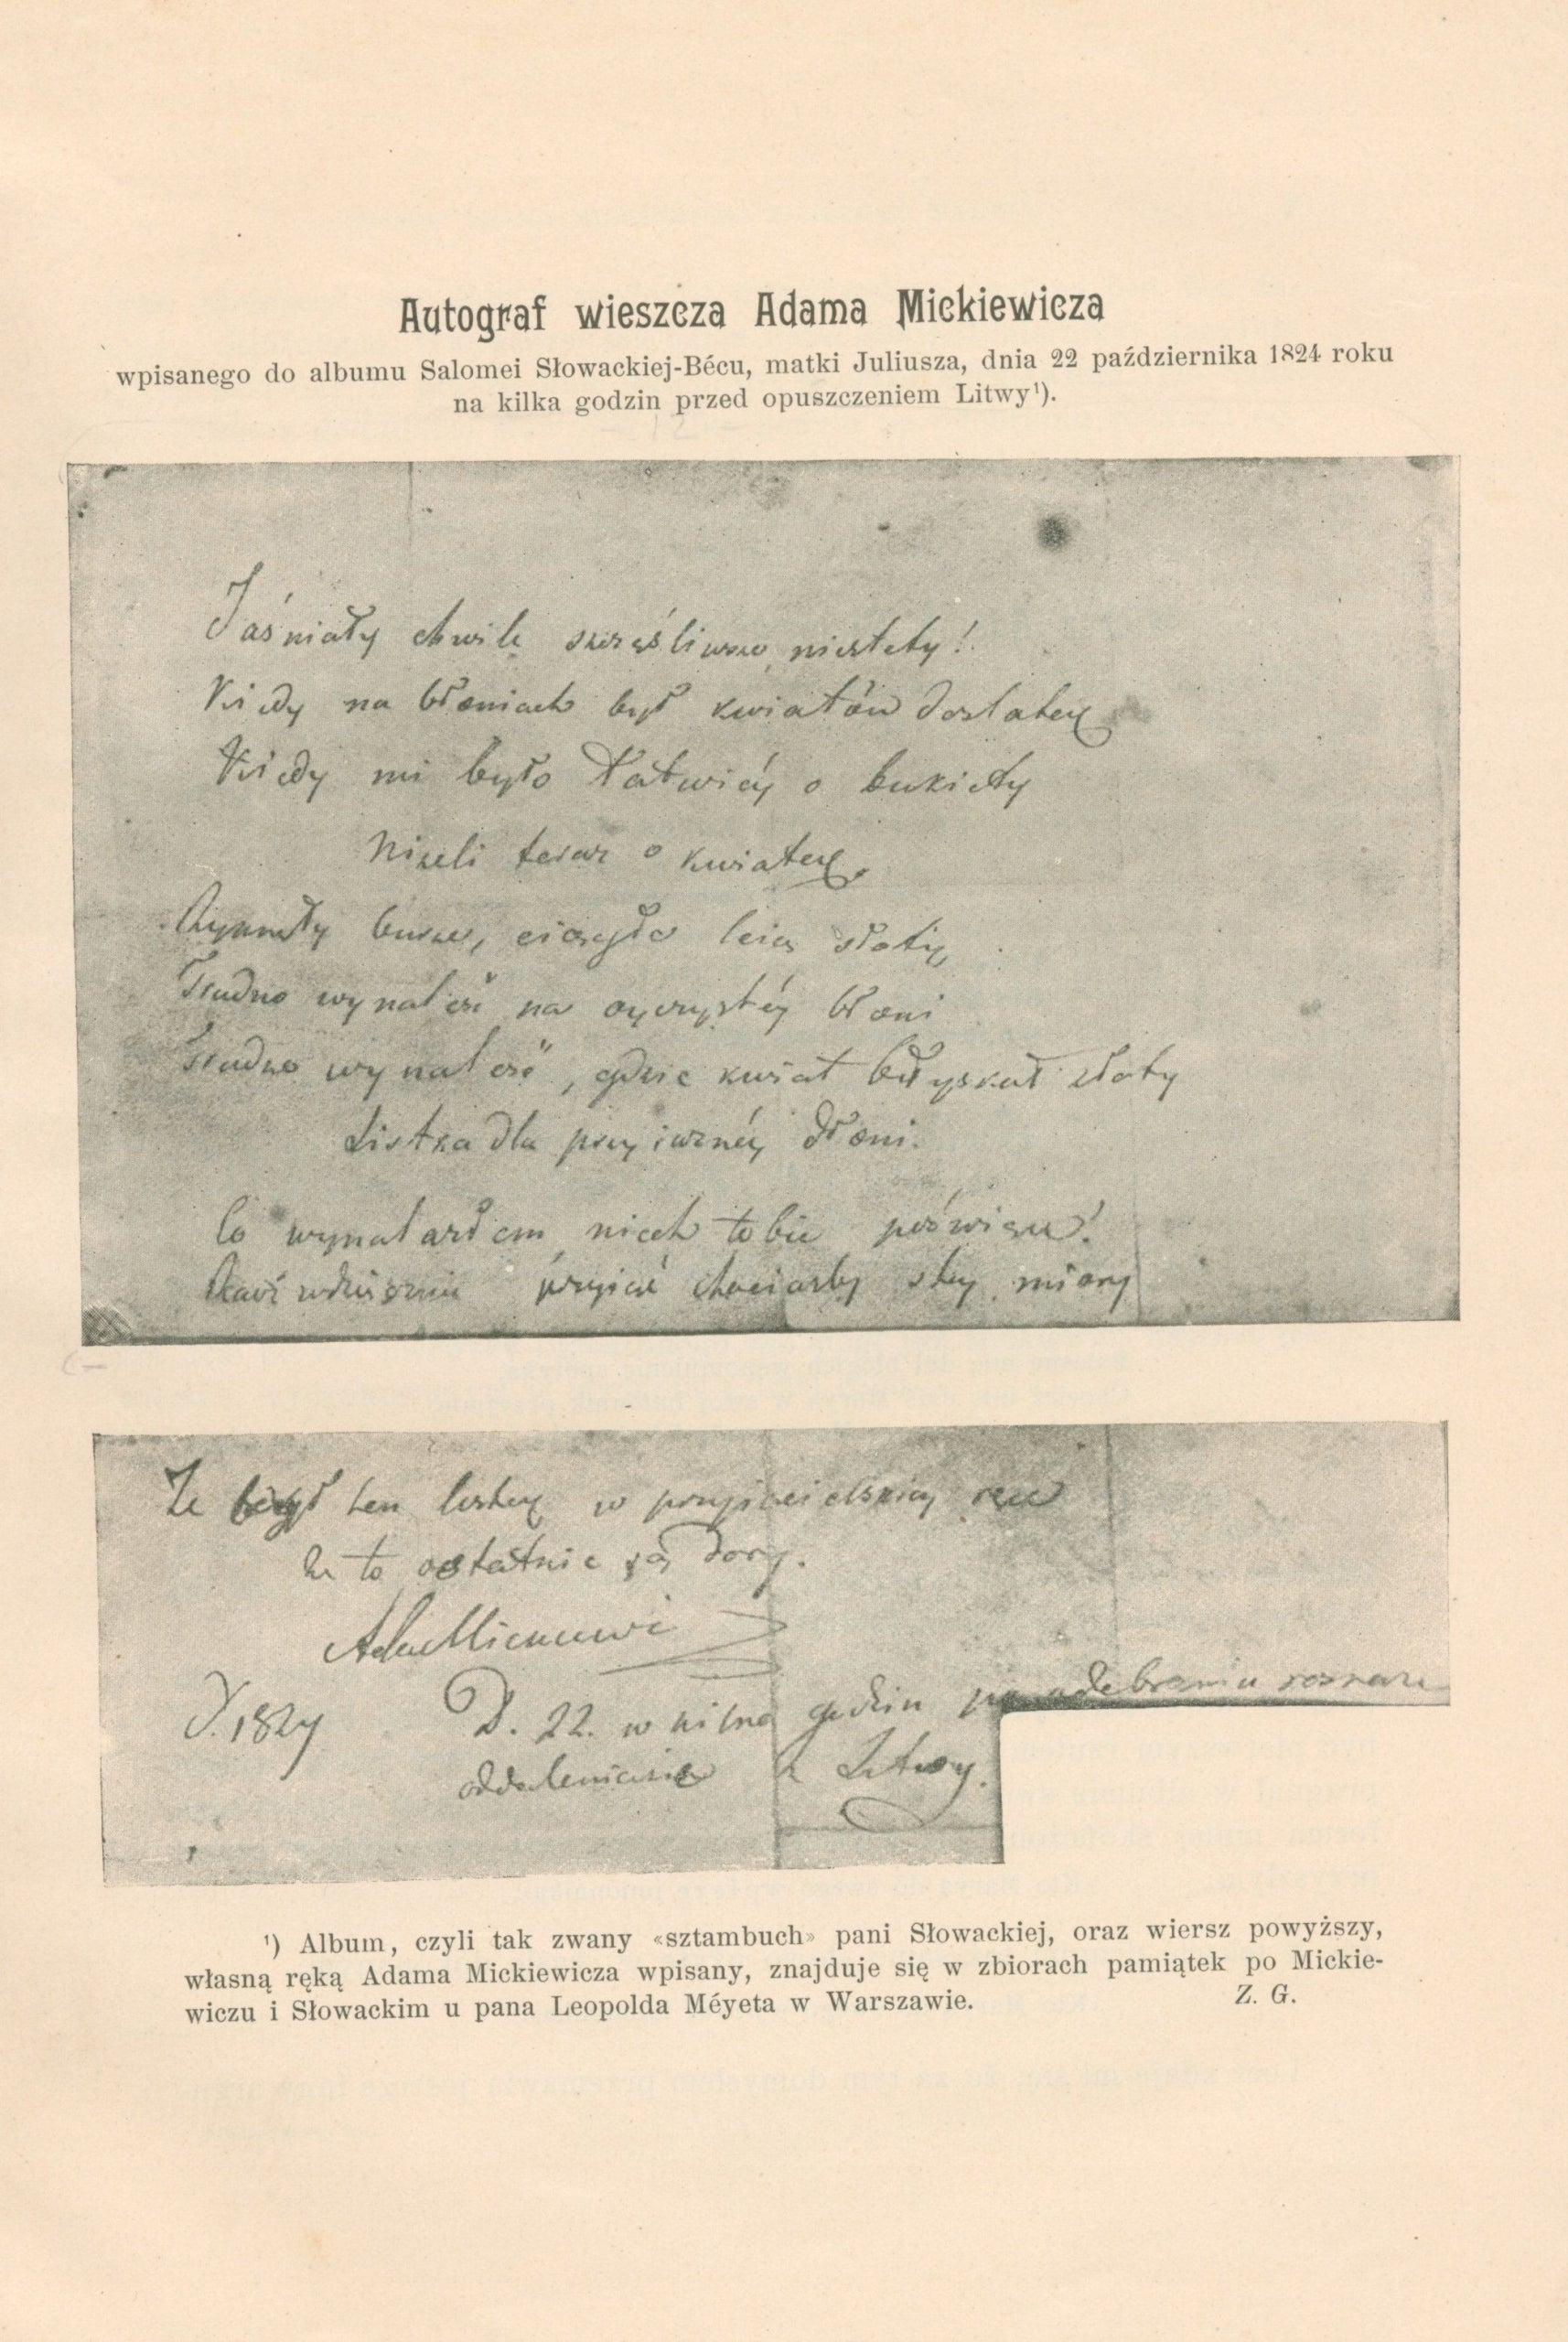 Autograf wieszcza Adama Mickiewicza
wpisanego do albumu Salomei Słowackiej-Bécu, matki Juliusza, dnia 22 października 1824 roku
na kilka godzin przed opuszczeniem Litwy¹).
Jaśniały chwile szczęśliwsze niestety!
Kiedy na błoniach był kwiatów dostatek
Kiedy mi było łatwiéj o bukiety
Niżeli teraz o kwiatek.
burze, ciągle leią słoty,
Trudno wynaleść na oyczystéj błoni
Trudno wynaleść, gdzie kwiat błyskał złoty
Listka dla przyiaznéy dłoni.
Co wynalazłem niech tobie poświęcę!
Racz wdzięcznie przyiąć chociażby z tey miary
Że był ten listek w przyjacielskiey ręce
Że to ostatnie są dary.
A. Mickiewicz
R. 1824 D. 22. w kilka godzin po odebraniu rozkazu
oddalenia się z Litwy.
¹) Album, czyli tak zwany «sztambuch» pani Słowackiej, oraz wiersz powyższy,
własną ręką Adama Mickiewicza wpisany, znajduje się w zbiorach pamiątek po Mickie-
wiczu i Słowackim u pana Leopolda Méyeta w Warszawie. Z. G.